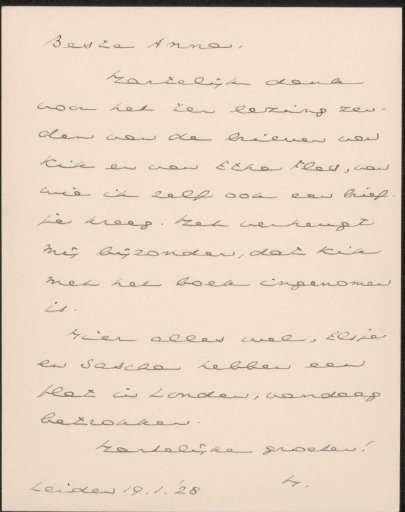 Beste Anna,
Hartelijk dank
voor het ter lezing zen-
den van de brieven van
Kik en van Etha Fles, van
wie ik zelf ook een brief-
je kreeg. Het verheugt
mij bijzonder, dat Kik
met het boek ingenomen
is.
Hier alles wel, Elsje
en Sascha hebben een
flat in Londen, vandaag
betrokken.
Hartelijke groeten!
H.
Leiden 19.1.'28